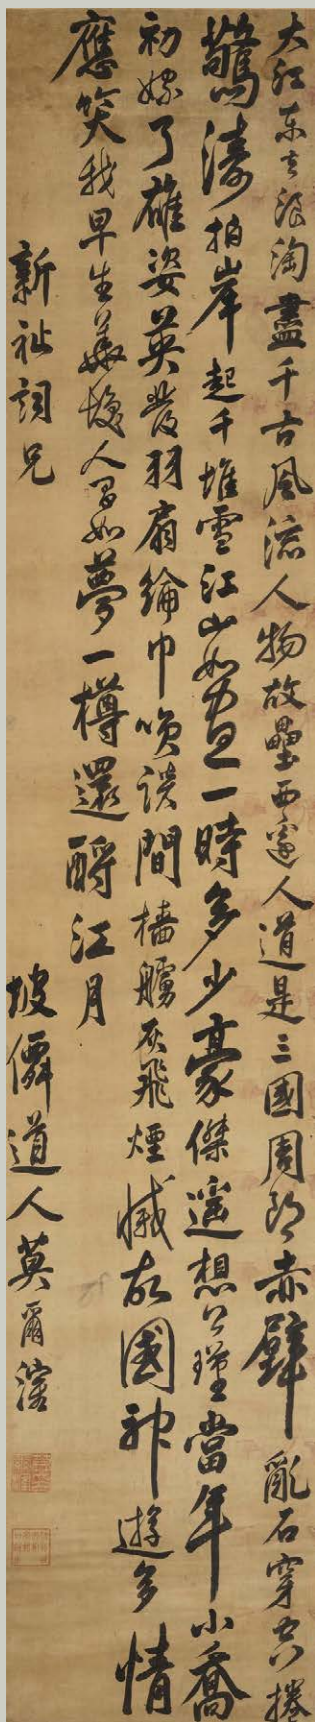 大江東去浪淘盡千古風流人物故壘西邊人道是三國周郎赤壁亂石穿空捲
驚濤拍岸起千堆雪江山如畫一時多少豪傑遙想公瑾當年小喬
初嫁了雄姿英發羽扇綸巾笑談間檣艣灰飛煙滅故國神遊多情
應笑我早生華髮人間如夢一樽還酹江月
新祉詞兄
坡僊道人莫爾㴶